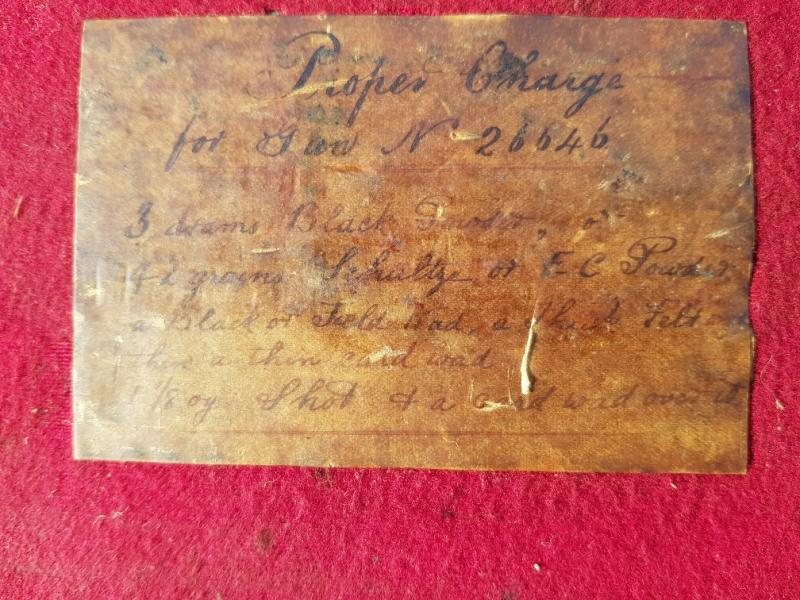 Proper Charge
for Gun No 26646
3 drams Black Powder, or
42 grains Schultze or E C Powder
a Black or Field Wad, a thick Felt and
then a thin card wad
1 1/8 oz Shot & a Card wad over it